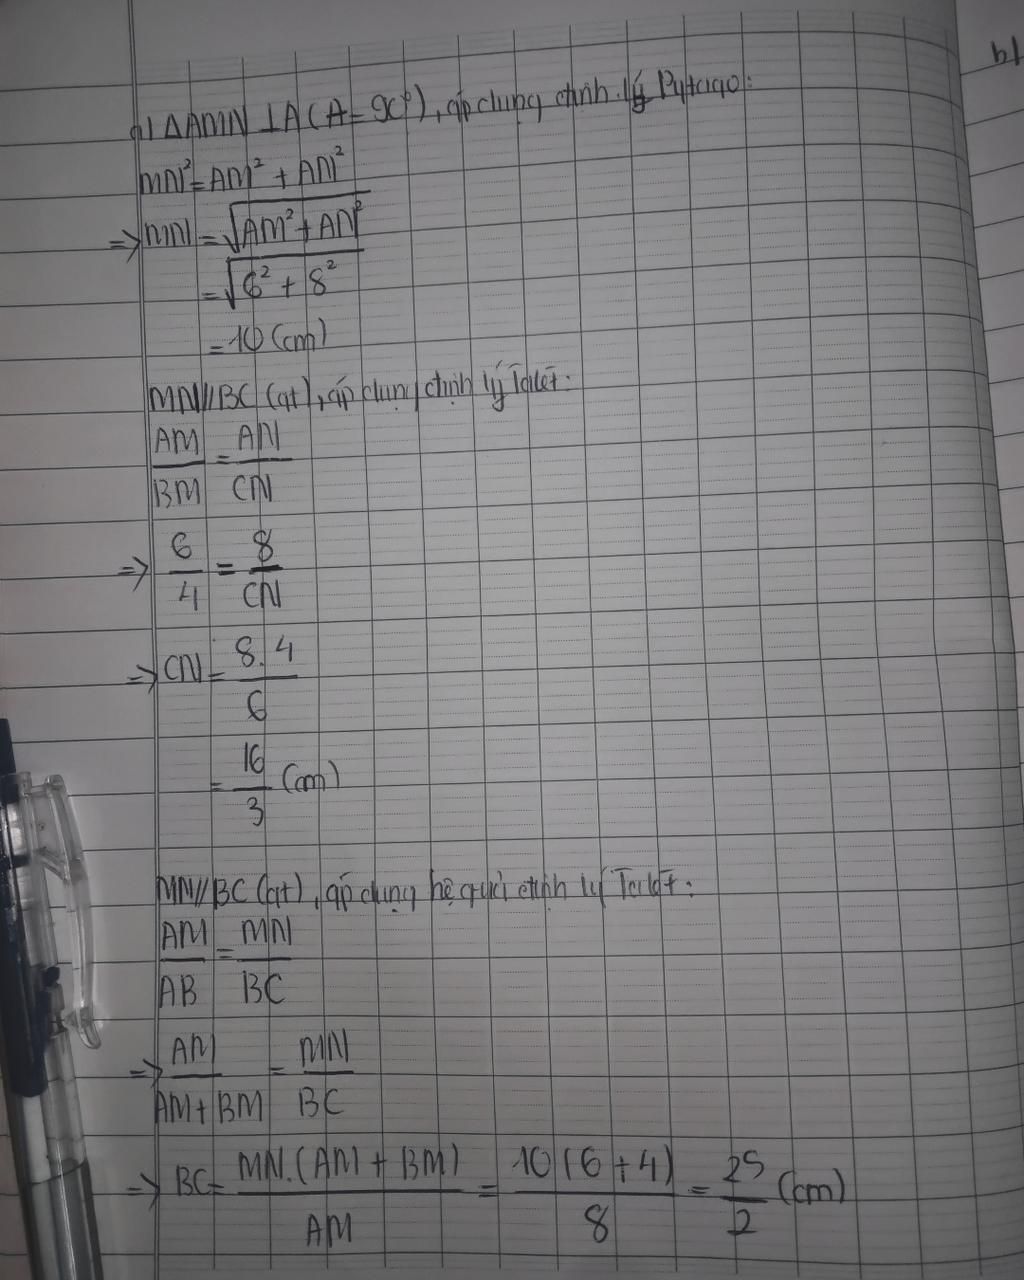 a) ΔAMN ⊥A (A = 90°), áp dụng định lý Pytago:
MN² = AM² + AN²
=> MN = √(AM² + AN²)
= √(6² + 8²)
= 10 (cm)
MN//BC (gt), áp dụng định lý Talét:
AM/BM = AN/CN
=> 6/4 = 8/CN
=> CN = 8.4/6
= 16/3 (cm)
MN//BC (gt), áp dụng hệ quả định lý Talét:
AM/AB = MN/BC
=> AM/(AM + BM) = MN/BC
=> BC = MN.(AM + BM)/AM = 10(6 + 4)/8 = 25/2 (cm)
b)